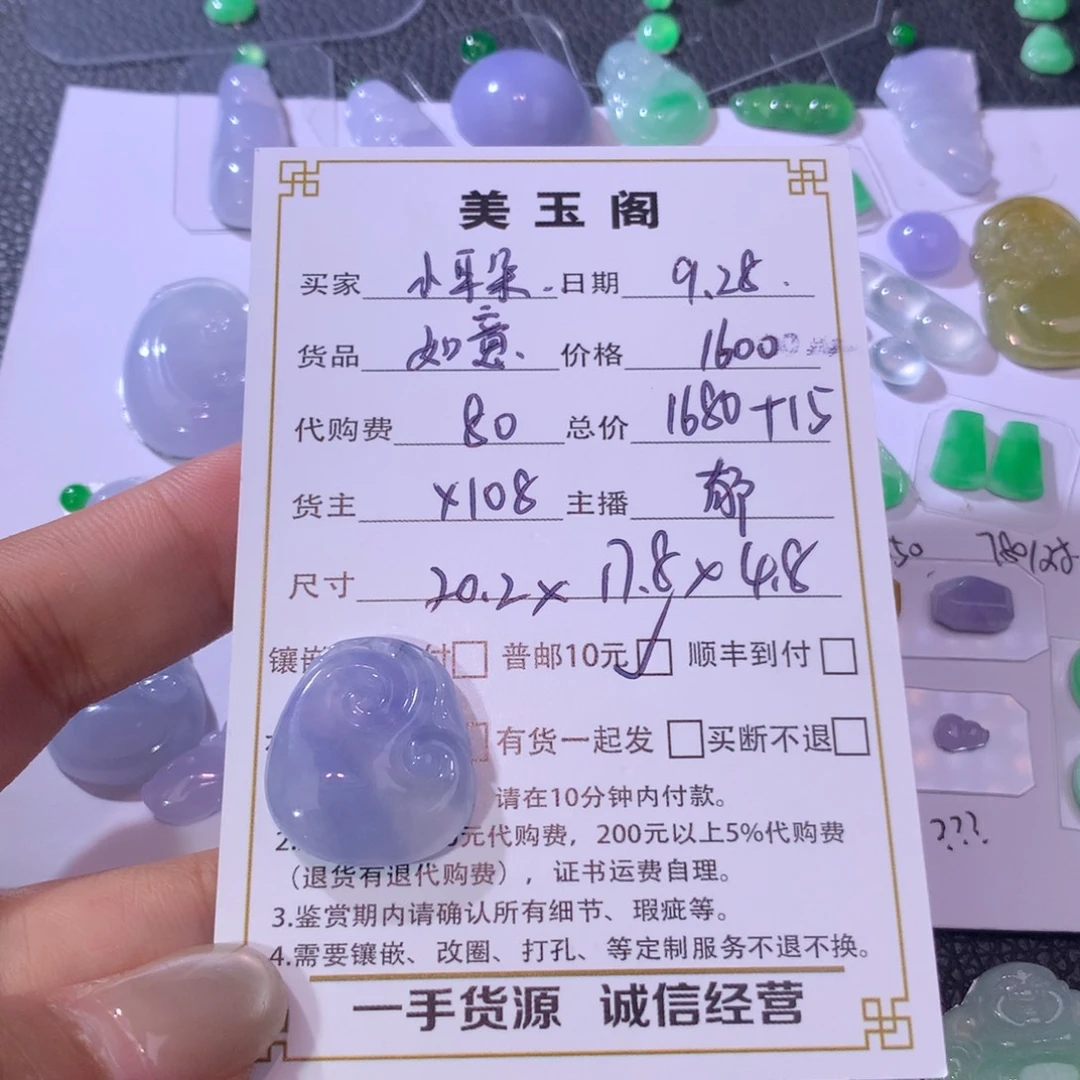 美玉阁
买家 小耳朵. 日期 9.28.
货品 如意. 价格 1600
代购费 80 总价 1680+15
货主 x108 主播 郁
尺寸 20.2x 17.8x4.8
镶嵌 付 普邮10元 顺丰到付
有货一起发 买断不退
请在10分钟内付款。
2. 元代购费，200元以上5%代购费
（退货有退代购费），证书运费自理。
3.鉴赏期内请确认所有细节、瑕疵等。
4.需要镶嵌、改圈、打孔、等定制服务不退不换。
一手货源 诚信经营
50
???